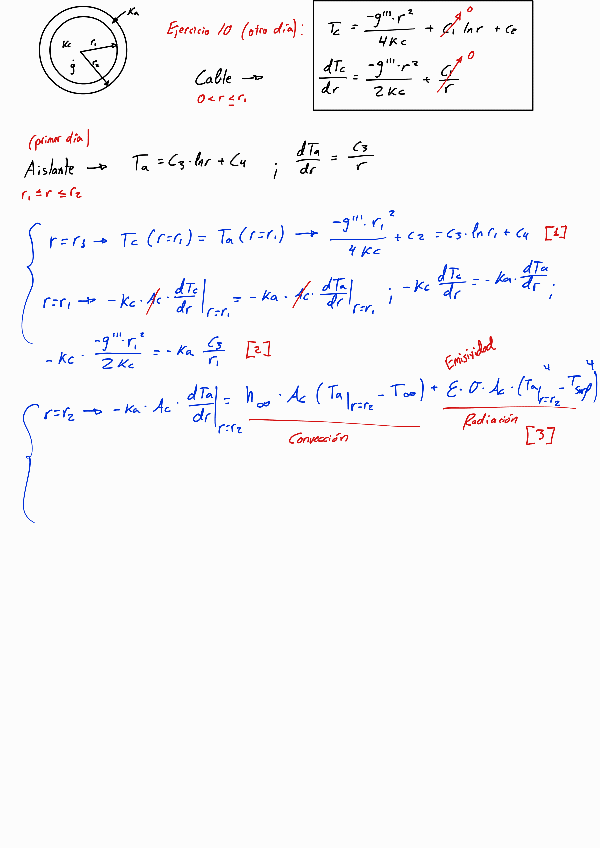 Ka
Kc r₁
r₂
ġ
Ejercicio 10 (otro día):
Tc = -g'''·r² / 4Kc + C₁ ln r + C₂
0
Cable →
0 < r ≤ r₁
dTc/dr = -g'''·r² / 2Kc + C₁/r
0
(primer día)
Aislante → Ta = C₃·ln r + C₄ ; dTa/dr = C₃/r
r₁ ≤ r ≤ r₂
r = r₃ → Tc (r=r₁) = Ta (r=r₁) → -g'''·r₁² / 4Kc + C₂ = C₃·ln r₁ + C₄ [1]
r=r₁ → -Kc·Ac·dTc/dr|r=r₁ = -Ka·Ac·dTa/dr|r=r₁ ; -Kc dTc/dr = -Ka·dTa/dr ;
-Kc · -g'''·r₁² / 2Kc = -Ka C₃/r₁ [2]
Emisividad
r=r₂ → -Ka·Ac·dTa/dr|r=r₂ = h∞·Ac (Ta|r=r₂ - T∞) + ε·σ·Ac·(Ta⁴|r=r₂ - Tsurf⁴)
Convección Radiación
[3]